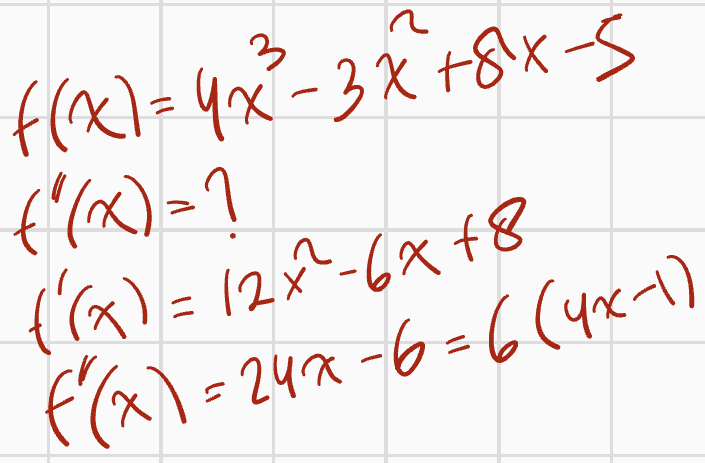 f(x) = 4x³ - 3x² + 8x - 5
f''(x) = ?
f'(x) = 12x² - 6x + 8
f''(x) = 24x - 6 = 6(4x - 1)